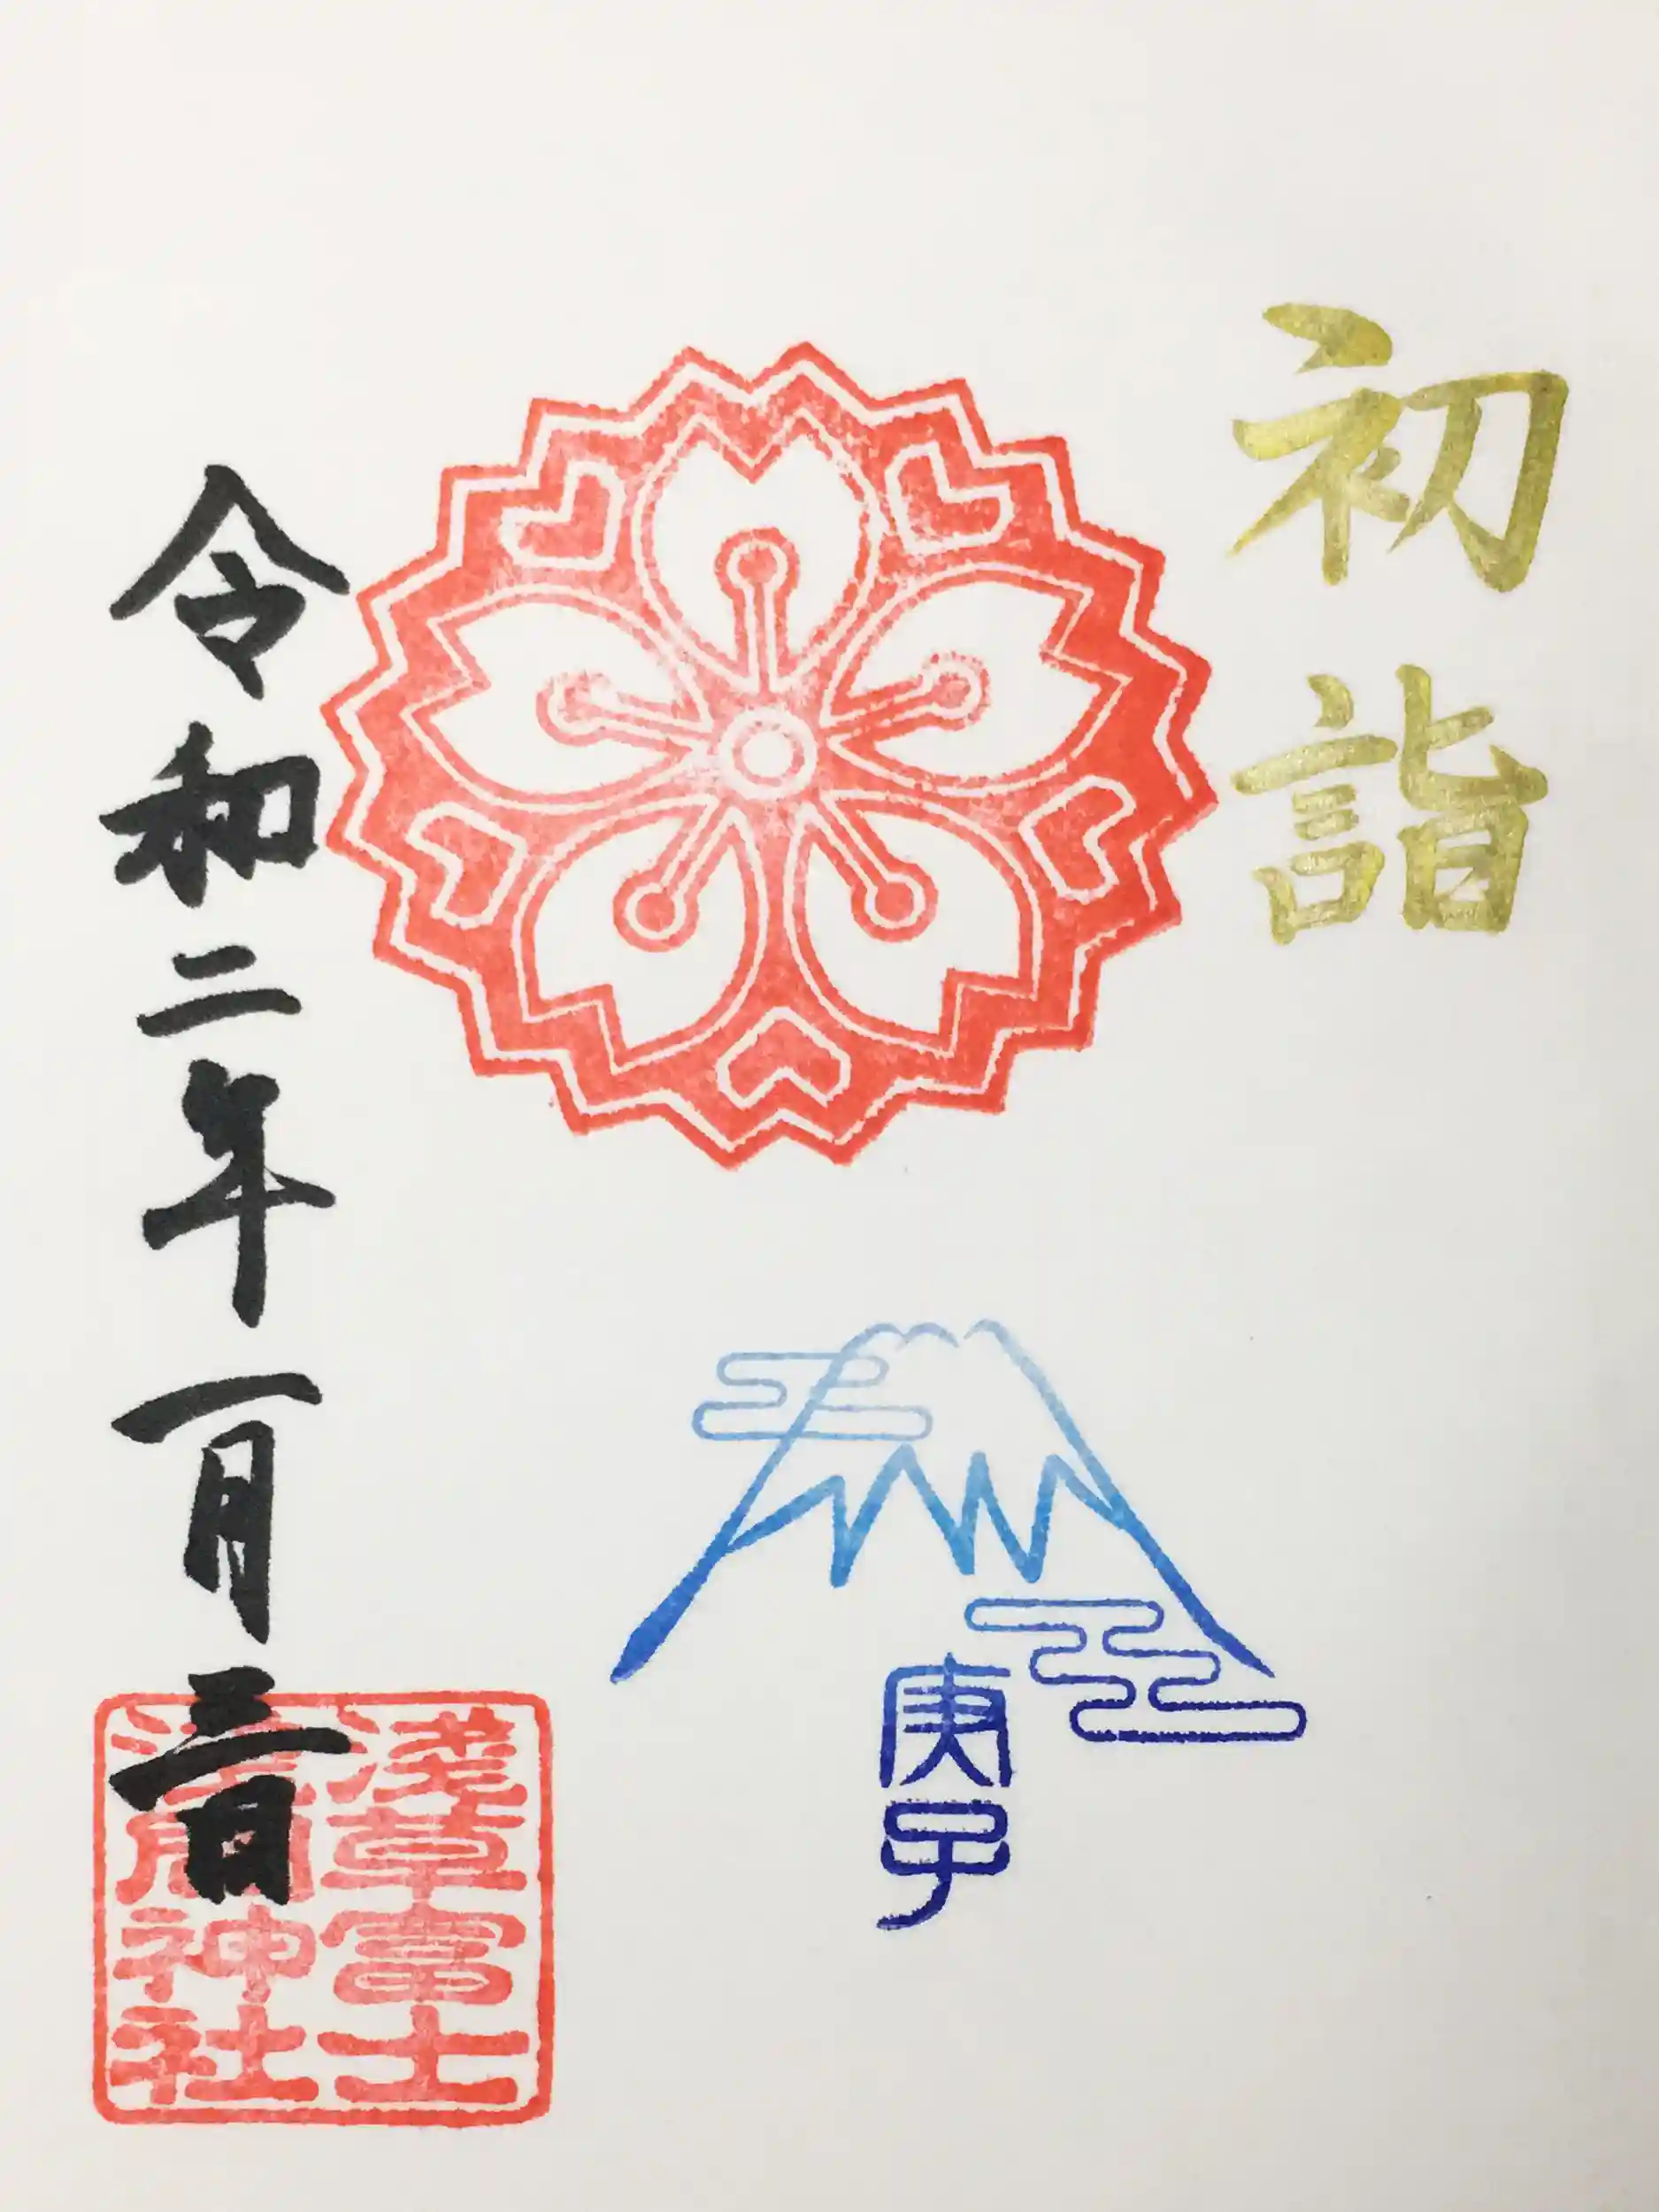 初詣
庚子
令和二年一月三日
浅草富士
浅間神社